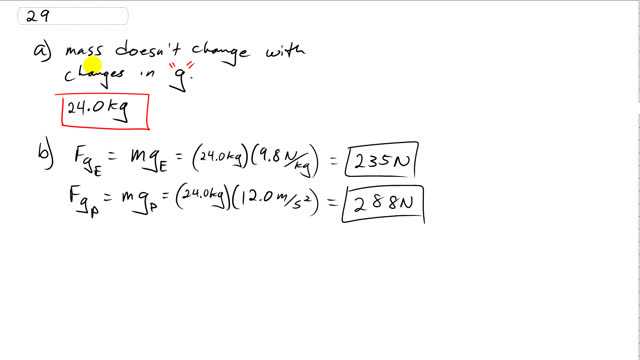 29
a) mass doesn't change with
changes in "g".
24.0 kg
b) F_gE = mg_E = (24.0kg)(9.8 N/kg) = 235N
F_gP = mg_P = (24.0kg)(12.0 m/s²) = 288N